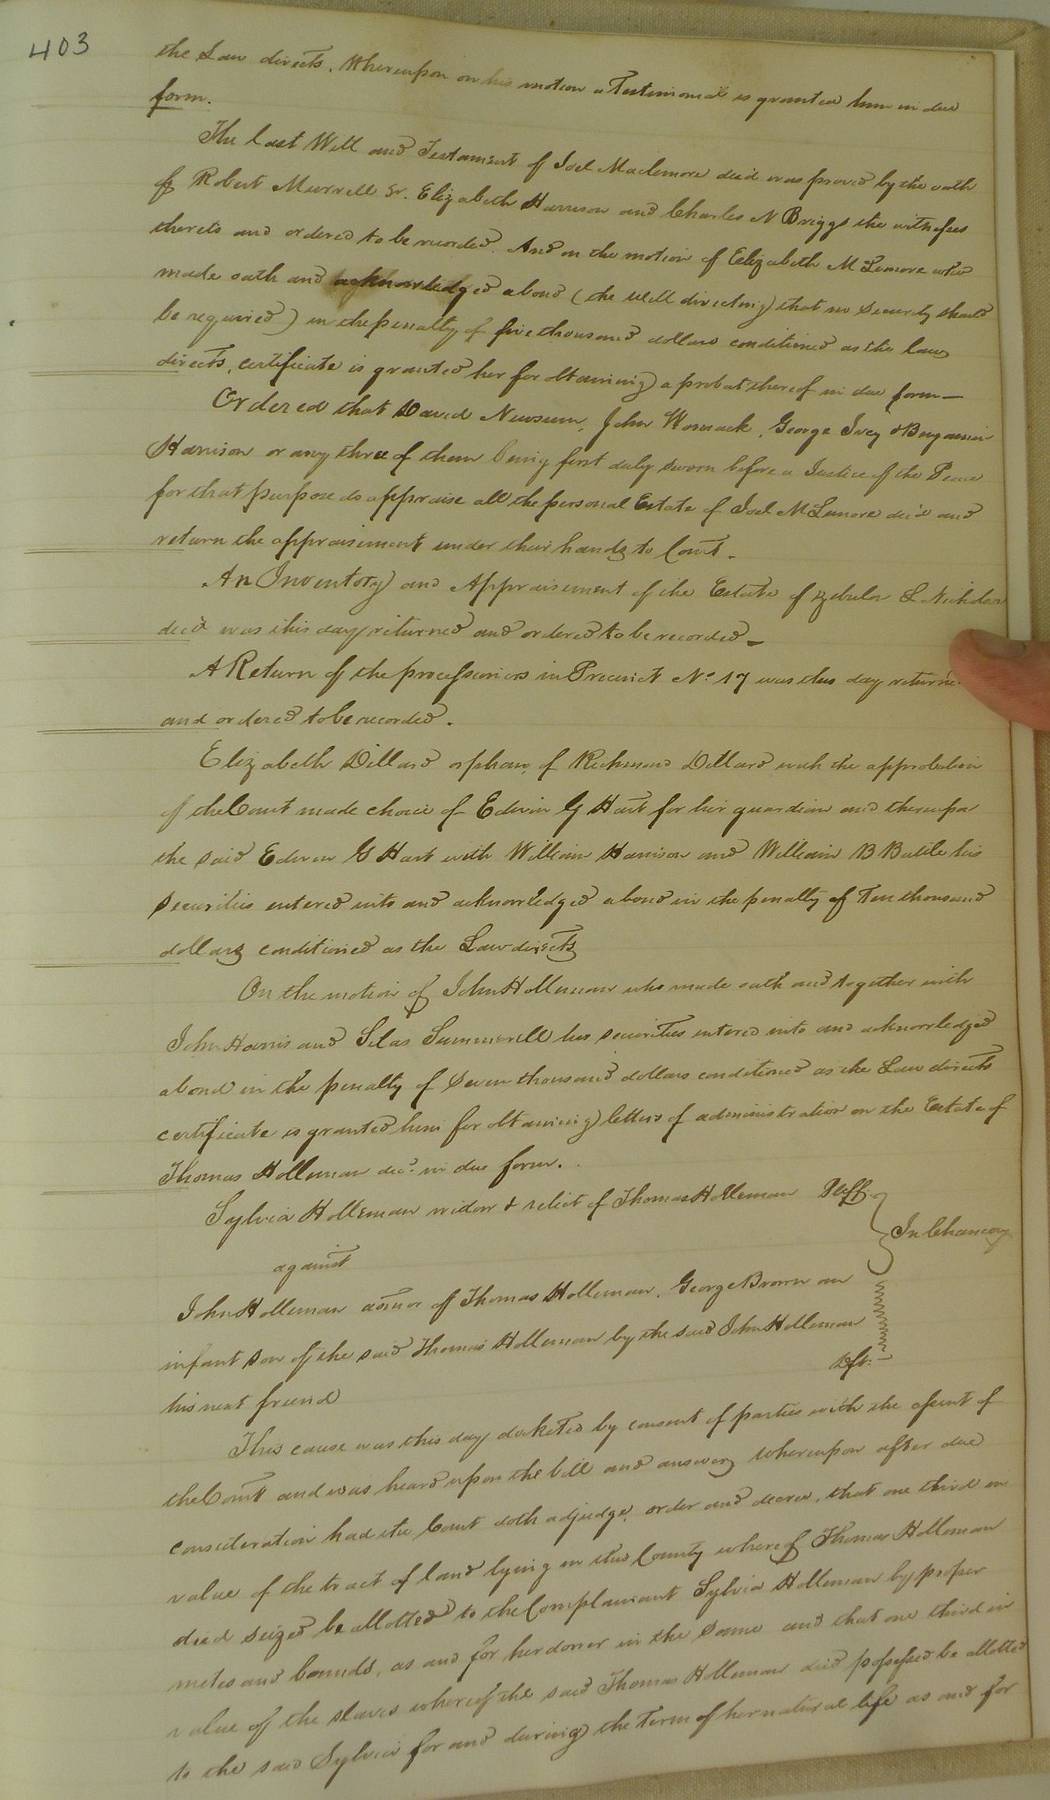 403
the Law directs. Whereupon on his motion a Testimonial is granted him in due
form.
The last Will and Testament of Joel Maclemore decd. was proved by the oath
of Robert Murrell Sr. Elizabeth Harrison and Charles N Briggs the witnesses
thereto and ordered to be recorded. And on the motion of Elizabeth McLemore who
made oath and acknowledged abond (the Will directing that no Security should
be required) in the penalty of five thousand dollars conditioned as the law
directs, certificate is granted her for obtaining a probat thereof in due form—
Ordered that David Newsum, John Womack, George Ivey & Benjamin
Harrison or any three of them being first duly sworn before a Justice of the Peace
for that purpose do appraise all the personal Estate of Joel McLemore decd and
return the appraisement under their hands to Court.
An Inventory and Appraisement of the Estate of L Nicholson
decd was this day returned and ordered to be recorded—
A Return of the processioners in Precinct No. 17 was this day returned
and ordered to be recorded.
Elizabeth Dillard orphan of Richmond Dillard with the approbation
of the Court made choice of Edwin G Hart for her guardian and thereupon
the said Edwin G Hart with William Harrison and William B Battle his
securities entered into and acknowledged abond in the penalty of Ten thousand
dollars conditioned as the Law directs
On the motion of John Holleman who made oath and together with
John Harris and Silas Summerell his securities entered into and acknowledged
abond in the penalty of Seven thousand dollars conditioned as the Law directs
certificate is granted him for obtaining letters of administration on the Estate of
Thomas Holleman decd. in due form.
Sylvia Holleman widow & relict of Thomas Holleman Plff.
In Chancery
against
John Holleman admor of Thomas Holleman, George Brown an
infant son of the said Thomas Holleman by the said John Holleman
his next friend Dft.
This cause was this day docketed by consent of parties with the assent of
the Court and was heard upon the bill and answers whereupon after due
consideration had the Court doth adjudge, order and decree, that one third in
value of the tract of land lying in this County whereof Thomas Holleman
died seized be allotted to the Complainant Sylvia Holleman by proper
metes and bounds, as and for her dower in the same and that one third in
value of the slaves whereof the said Thomas Holleman died possessed be allotted
to the said Sylvia for and during the Term of her natural life as and for